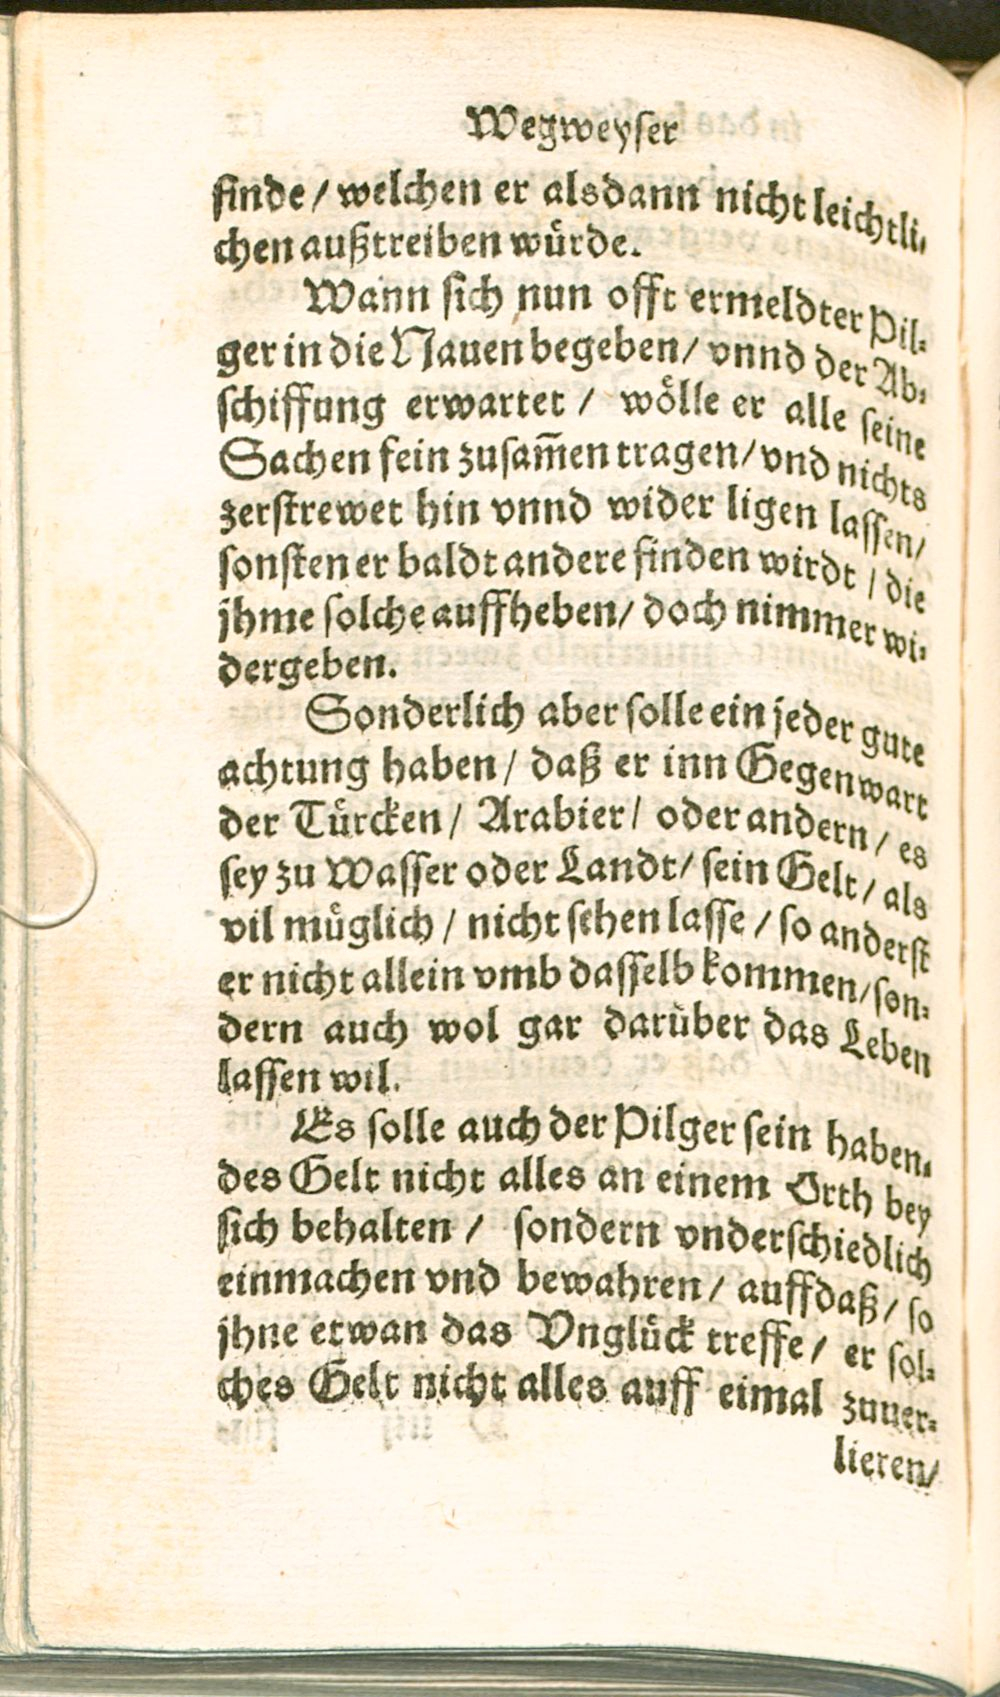 Wegweyser
finde / welchen er alsdann nicht leichtli-
chen außtreiben würde.
Wann sich nun offt ermeldter Pil-
ger in die Nauen begeben / vnnd der Ab-
schiffung erwartet / wölle er alle seine
Sachen fein zusam̃en tragen / vnd nichts
zerstrewet hin vnnd wider ligen lassen /
sonsten er baldt andere finden wirdt / die
jhme solche auffheben / doch nimmer wi-
dergeben.
Sonderlich aber solle ein jeder gute
achtung haben / daß er inn Gegenwart
der Türcken / Arabier / oder andern / es
sey zu Wasser oder Landt / sein Gelt / als
vil müglich / nicht sehen lasse / so anderst
er nicht allein vmb dasselb kommen / son-
dern auch wol gar darüber das Leben
lassen wil.
Es solle auch der Pilger sein haben-
des Gelt nicht alles an einem Orth bey
sich behalten / sondern vnderschiedlich
einmachen vnd bewahren / auffdaß / so
jhne etwan das Vnglück treffe / er sol-
ches Gelt nicht alles auff eimal zuuer-
lieren /